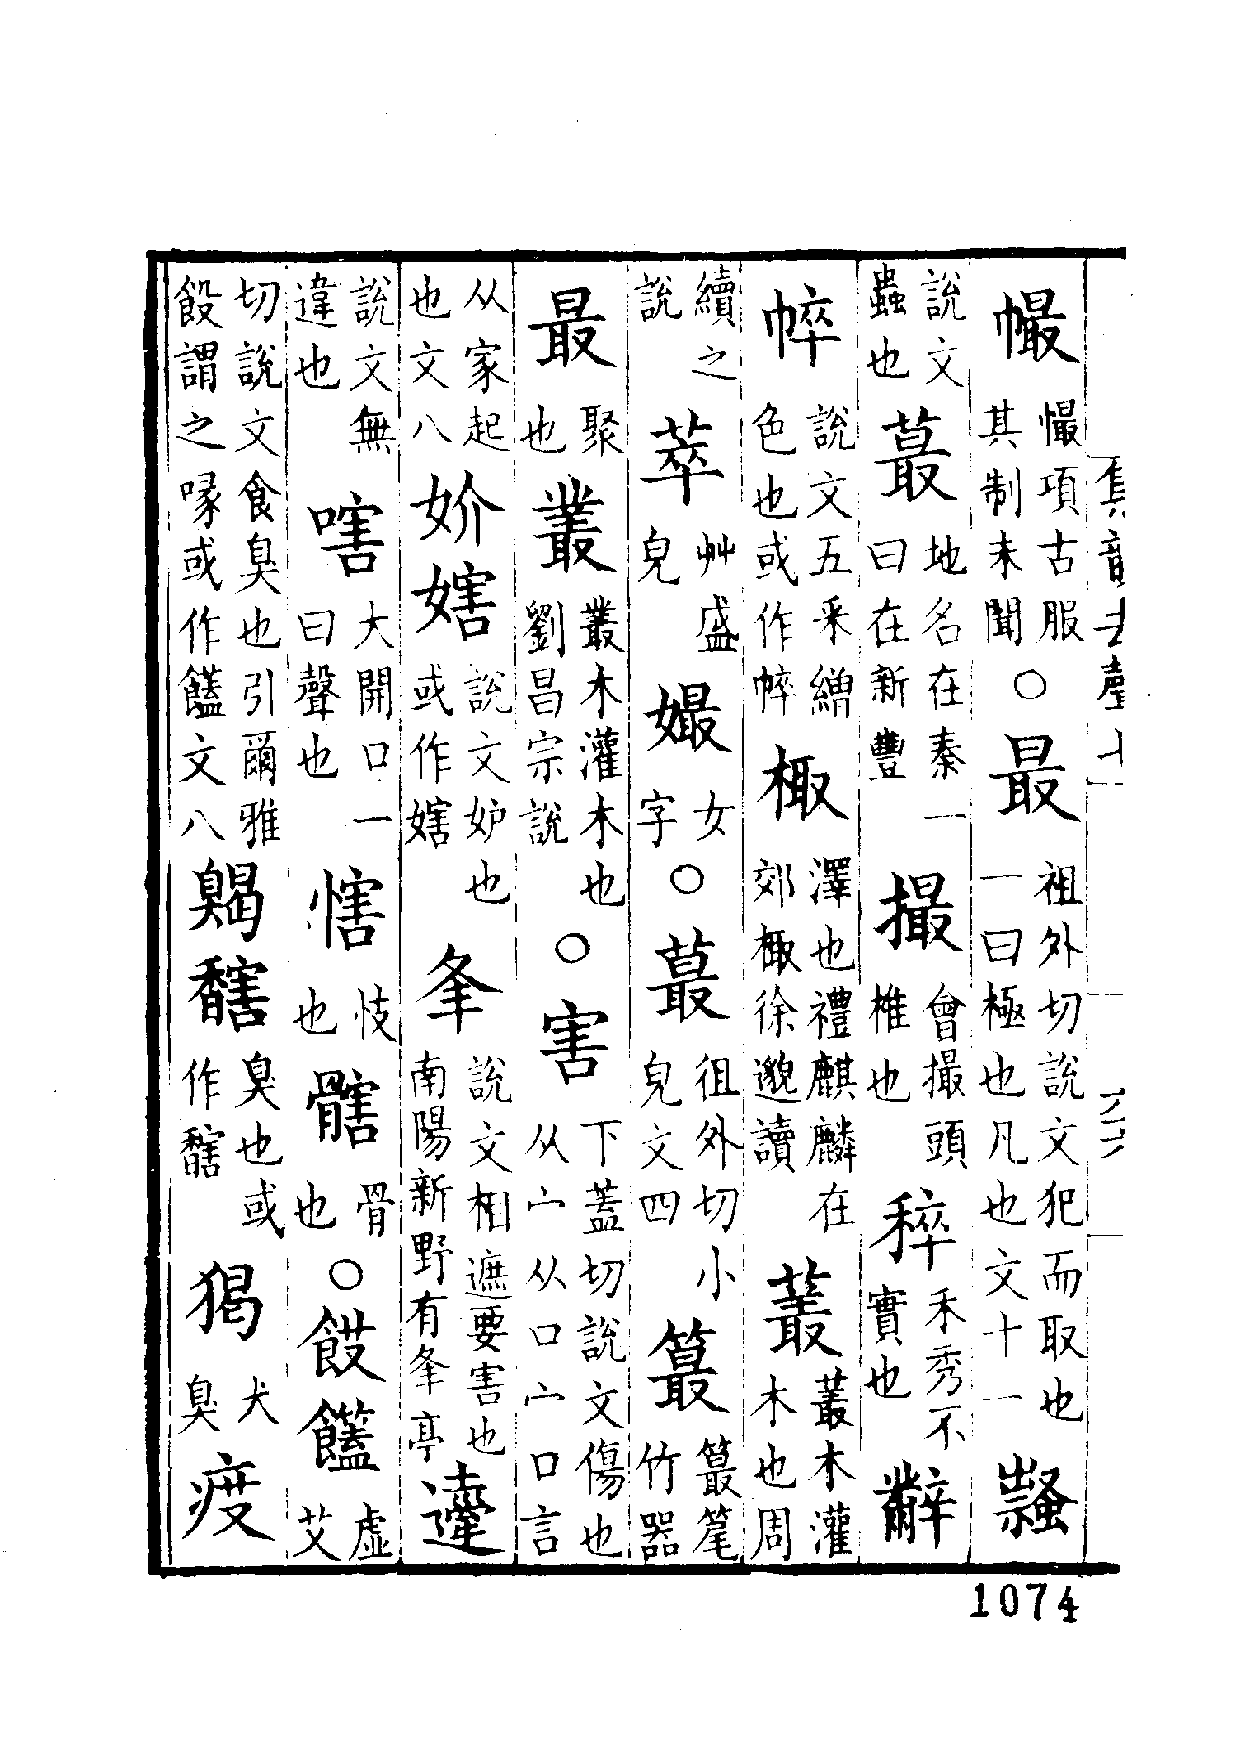 㡡項古服其制未聞○最祖外切說文犯而取也一曰極也凡也文十一
說文蟲也蕞地名在秦一曰在新豐撮會撮頭椎也稡禾秀不實也
說文五采繒色也或作棷澤也禮麒麟在郊棷徐邈讀藂叢木灌木也周
續之說萃艸盛皃嬵女字○蕞徂外切小皃文四竹器
最聚也叢叢木灌木也劉昌宗說○害下蓋切說文傷也从宀从口宀口言
从家起也文八妎㛿說文妒也或作㛿夆說文相遮要害也南陽新野有夆亭
說文無違也嗐大開口一曰聲也忮也骨也○餀饚虛艾
切說文食臭也引爾雅餀謂之喙或作饚文八臭也或作猲犬臭
集韻去聲七
1074